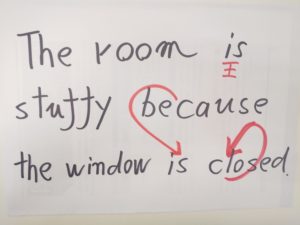 The room is
stuffy because
the window is closed.